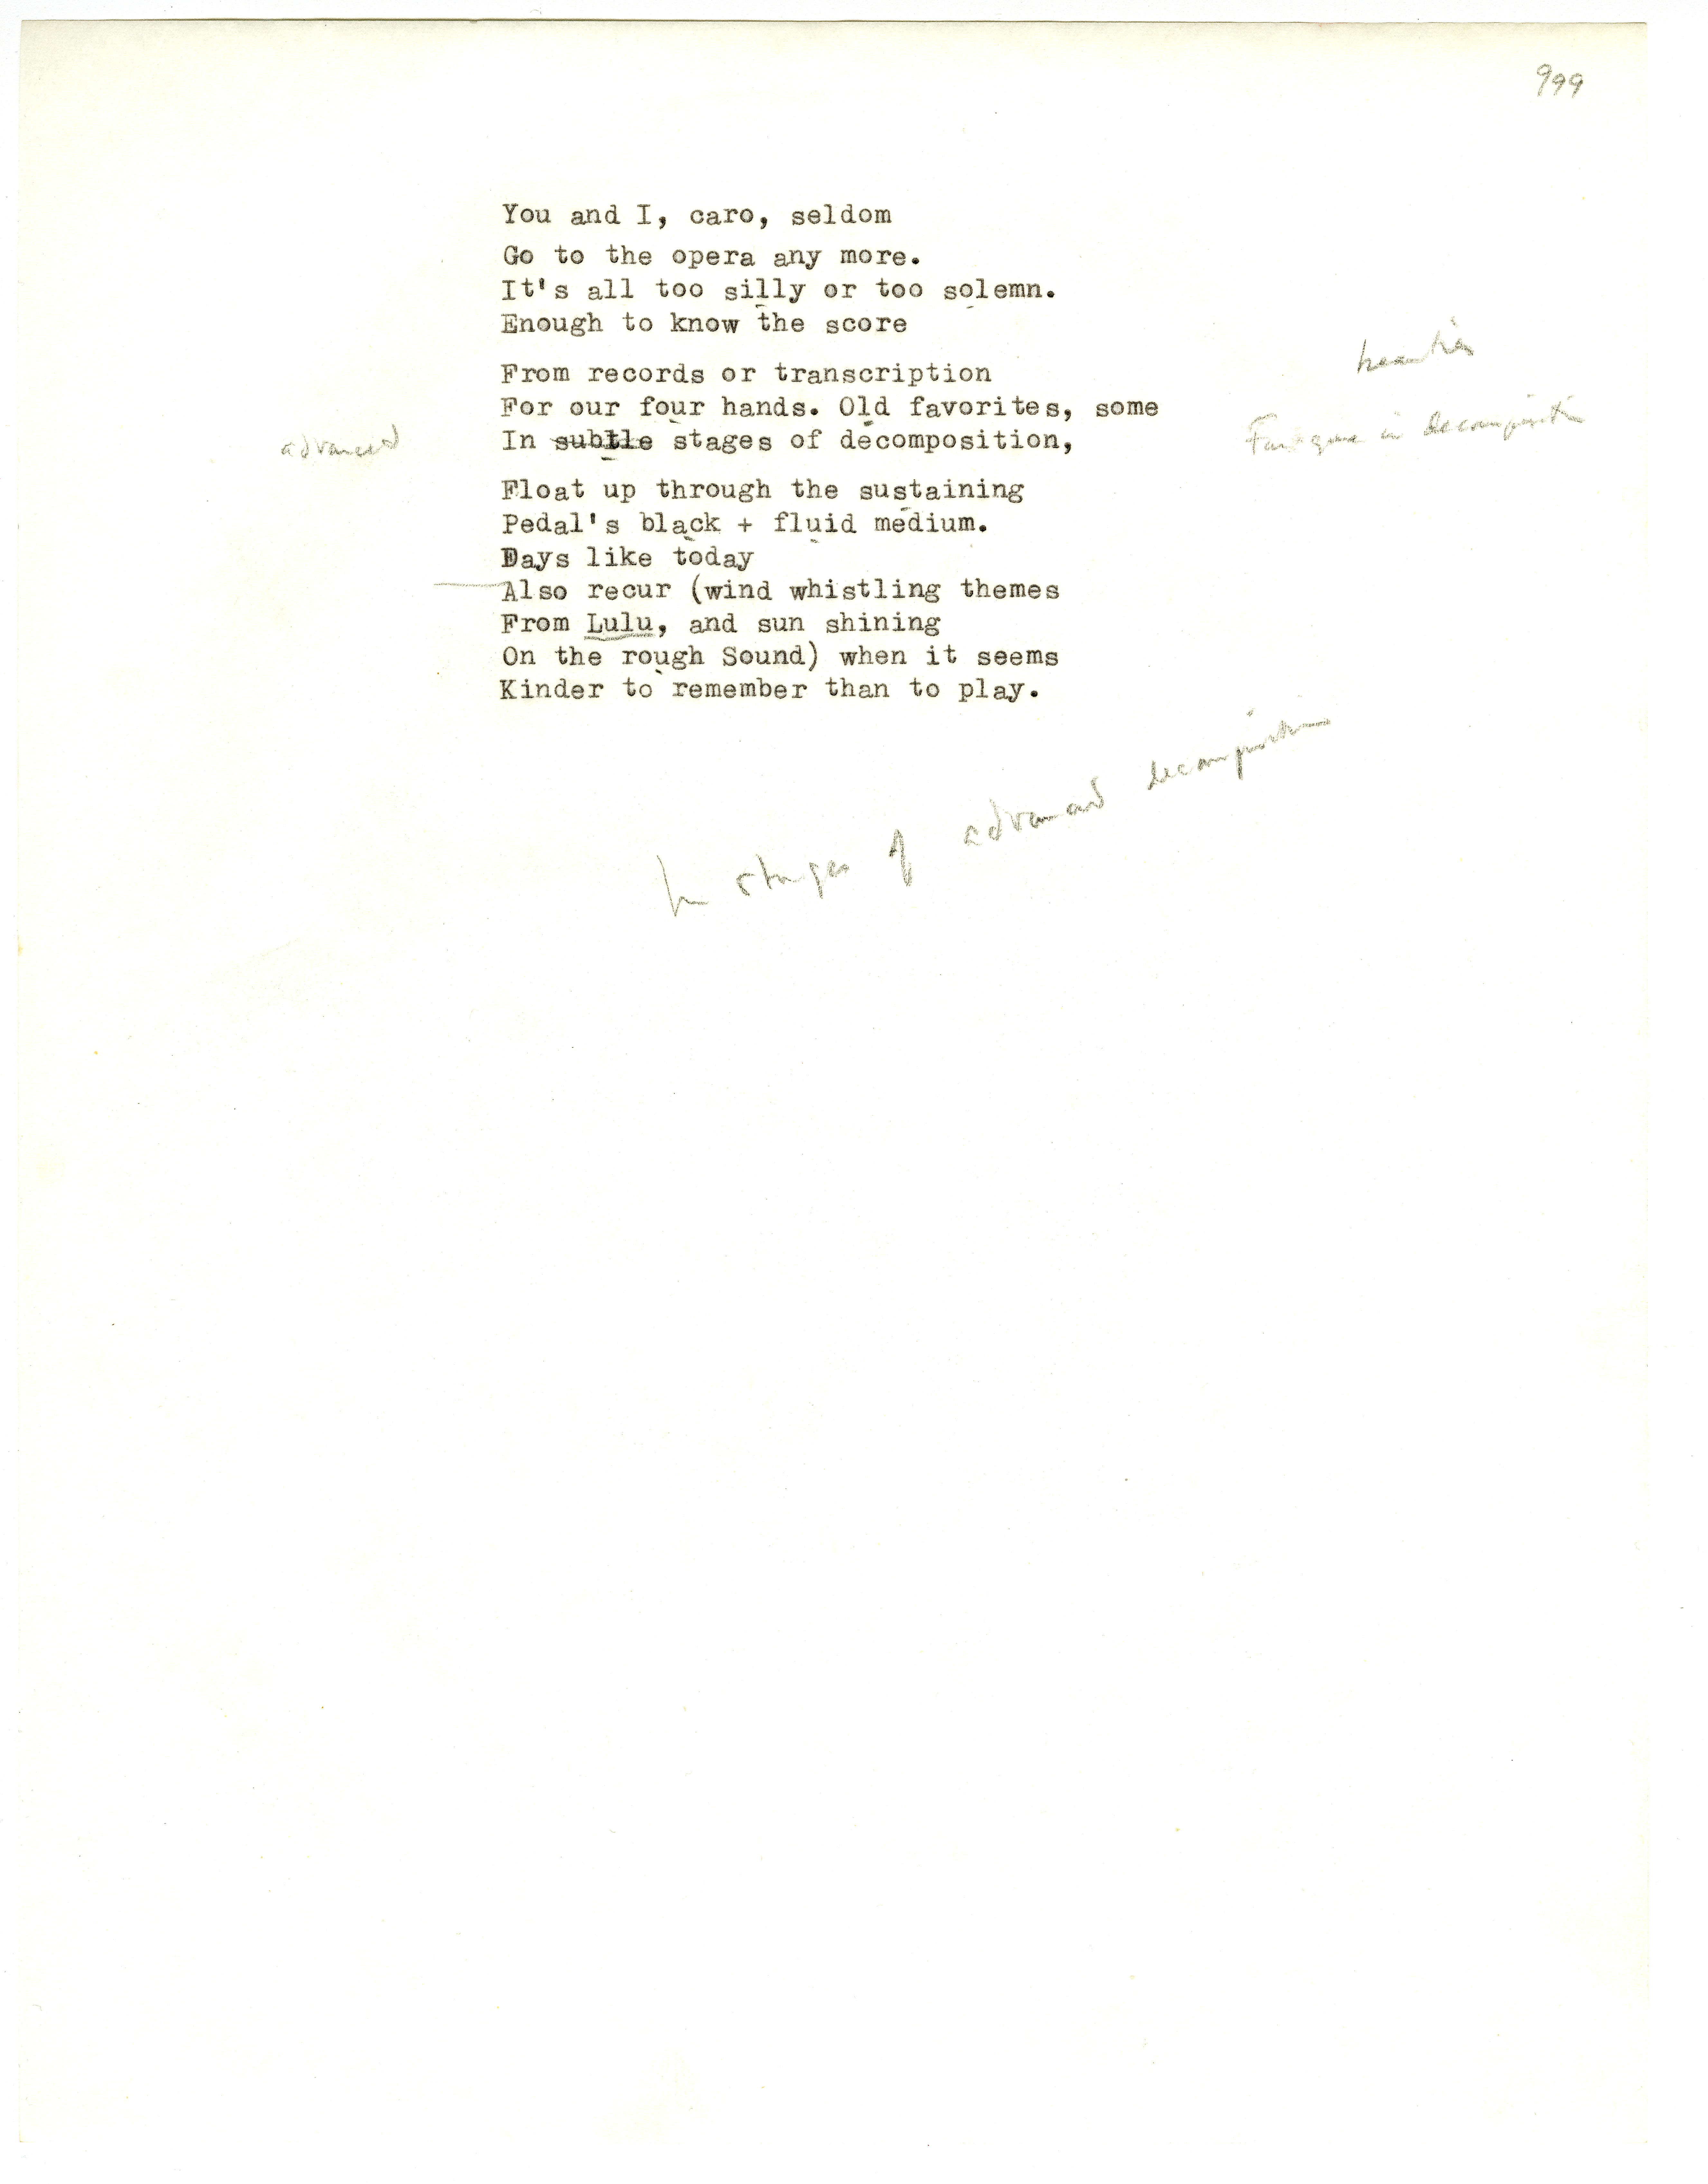 999
You and I, caro, seldom
Go to the opera any more.
It's all too silly or too solemn.
Enough to know the score
From records or transcription
For our four hands. Old favorites, some
advanced In subtle stages of decomposition,
in decomposition
Float up through the sustaining
Pedal's black + fluid medium.
Days like today
Also recur (wind whistling themes
From Lulu, and sun shining
On the rough Sound) when it seems
Kinder to remember than to play.
In stages of advanced decomposition